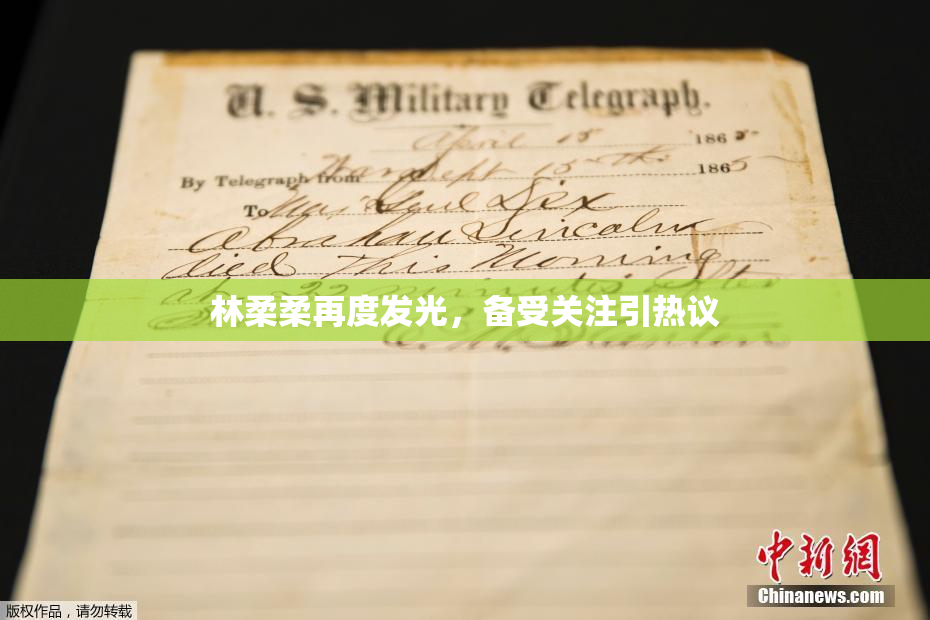 U. S. Military Telegraph.
April 15 1865
By Telegraph from War Dept 15th 1865
To Maj Genl Dix
Abraham Lincoln
died This Morning
at 22 minutes after
林柔柔再度发光，备受关注引热议
中新网
Chinanews.com
版权作品，请勿转载